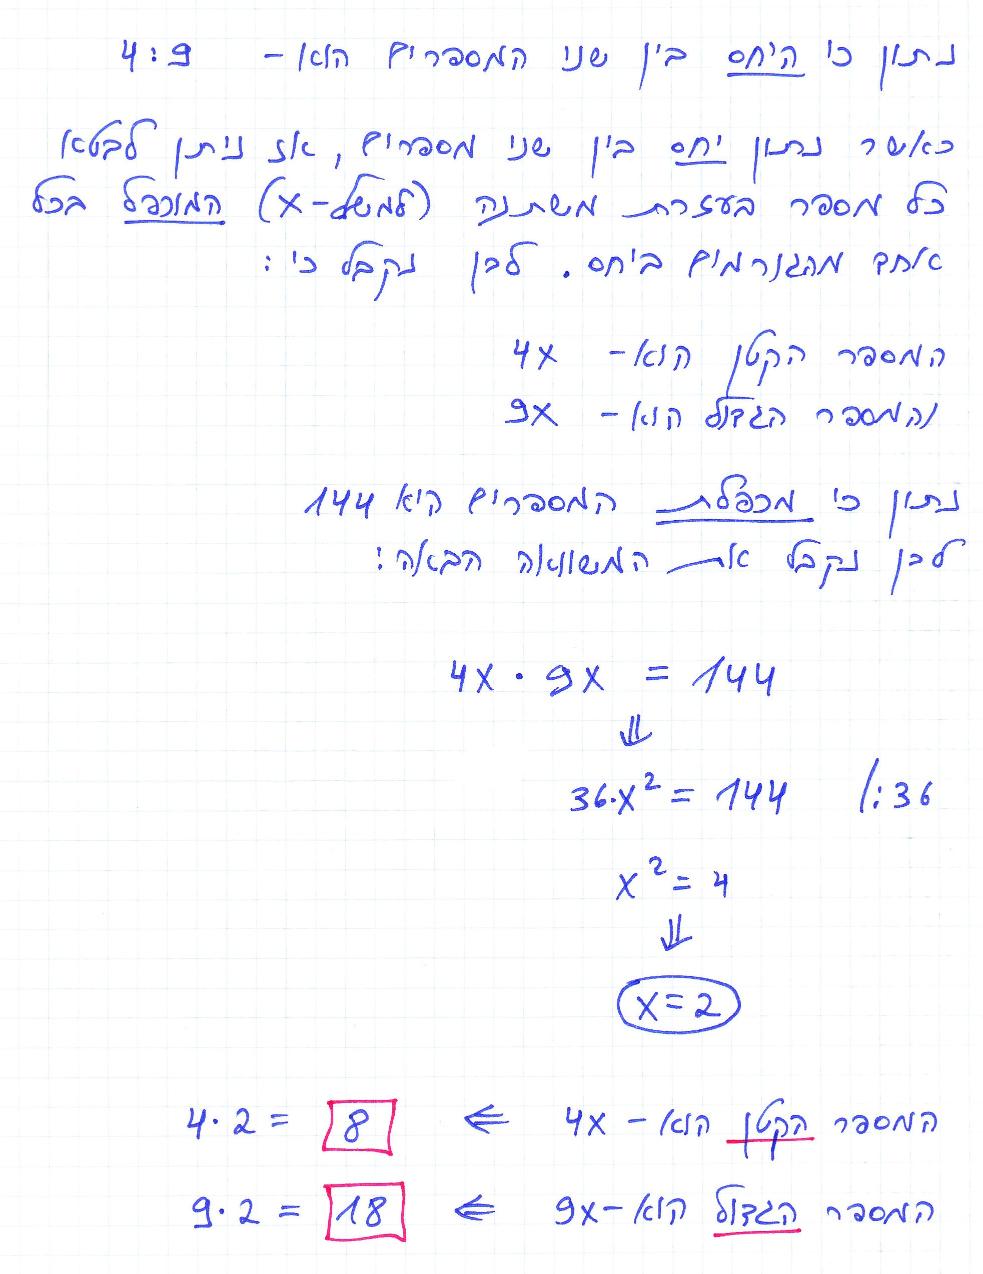 נתון כי היחס בין שני המספרים הוא - 4:9
כאשר נתון יחס בין שני מספרים, אז ניתן לבטא
כל מספר בעזרת משתנה (למשל-x) המוכפל בכל
אחד מהגורמים ביחס. לכן נקבל כי:
המספר הקטן הוא - 4x
והמספר הגדול הוא - 9x
נתון כי מכפלת המספרים היא 144
לכן נקבל את המשוואה הבאה:
4x · 9x = 144
⇓
36·x² = 144 /:36
x² = 4
⇓
x=2
המספר הקטן הוא - 4x ⇐ 4·2 = 8
המספר הגדול הוא - 9x ⇐ 9·2 = 18